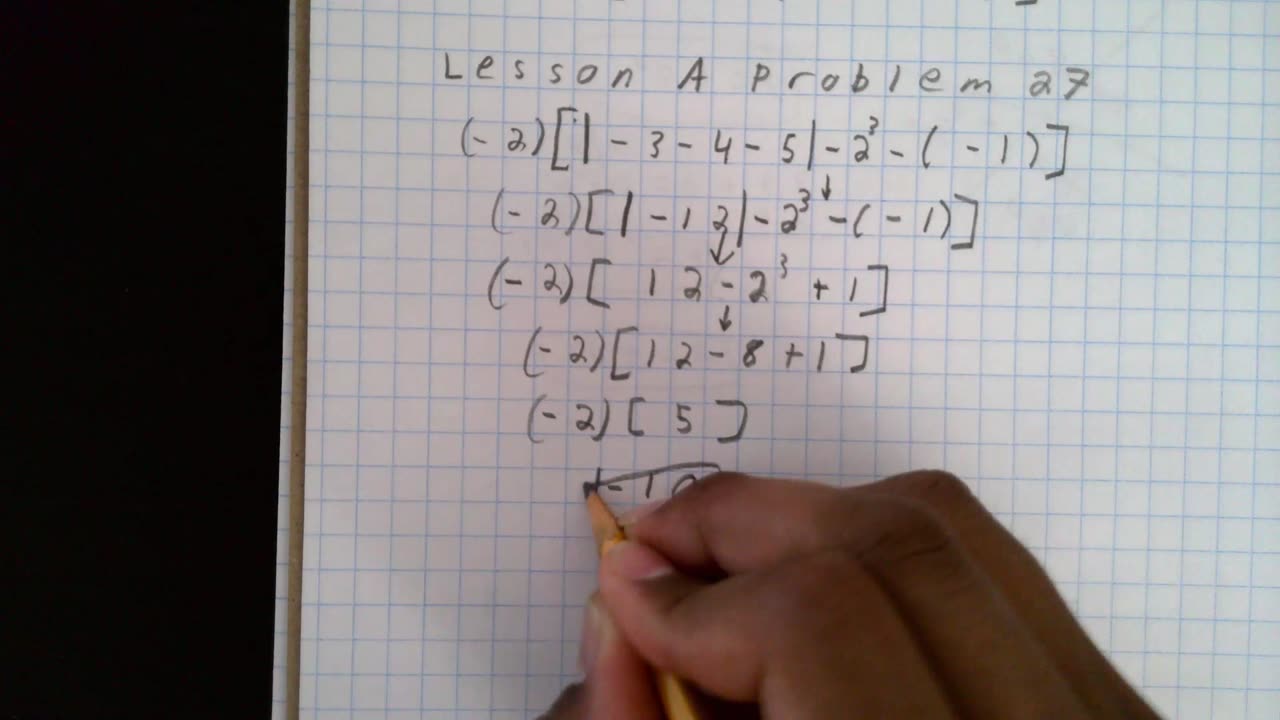 Lesson A Problem 27
(-2)[|-3-4-5|-2³-(-1)]
(-2)[|-12|-2³-(-1)]
(-2)[12-2³+1]
(-2)[12-8+1]
(-2)[5]
-10